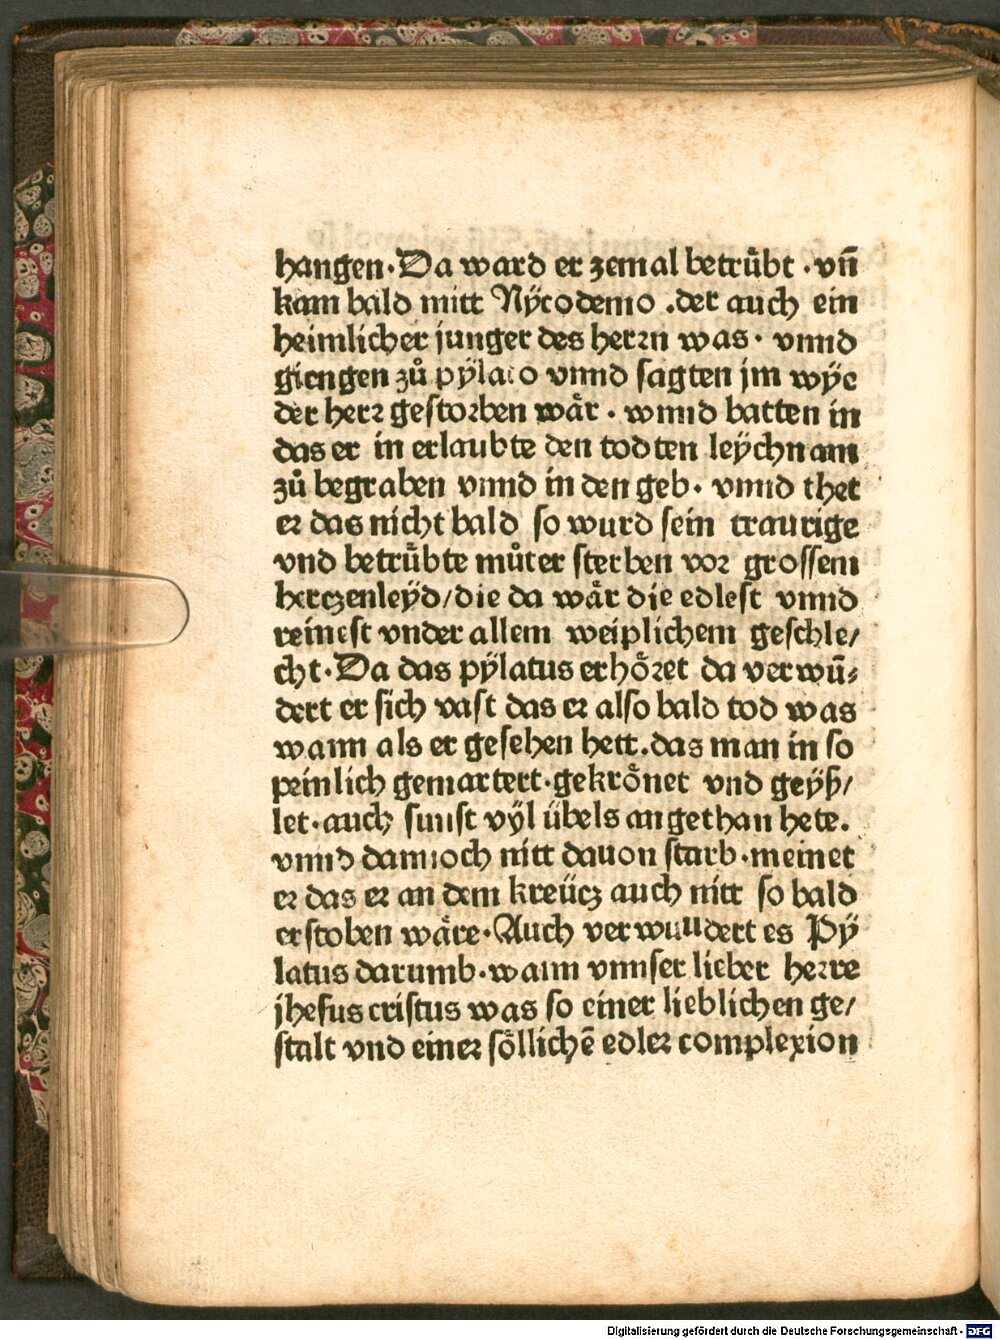 hangen·Da ward er zemal betru̇bt·vn̄
kam bald mitt Nÿcodemo .der auch ein
heimlicher junger des herꝛn was· vnnd
giengen zů pÿlato vnnd sagten jm wÿe
der herꝛ gestoꝛben wa̋r · wnnd batten in
das er in erlaubte den todten leÿchnam
zů begraben vnnd in den geb· vnnd thet
eꝛ das nicht bald so wurd sein traurige
vnd betrübte můter sterben voꝛ grossem
herczenleÿd/die da wär die edlest vnnd
reinest vnder allem weiplichem geschle/
cht·Da das pÿlatus erhöꝛet da verwū⸗
dert er sich vast das eꝛ also bald tod was
wann als er gesehen hett.das man in so
peinlich gemartert·gekrönet vnd geÿß/
let·auch sunst vÿl übels angethan hete.
vnnd dannoch nitt dauon starb·meinet
eꝛ das eꝛ an dem kreücz auch nitt so bald
erstoben wäre·Auch verwundert es Pÿ
latus darumb·wann vnnser lieber heꝛre
jhesus cristus was so einer lieblichen ge/
stalt vnd eineꝛ söllichē edleꝛ complexion
Digitalisierung gefördert durch die Deutsche Forschungsgemeinschaft - DFG